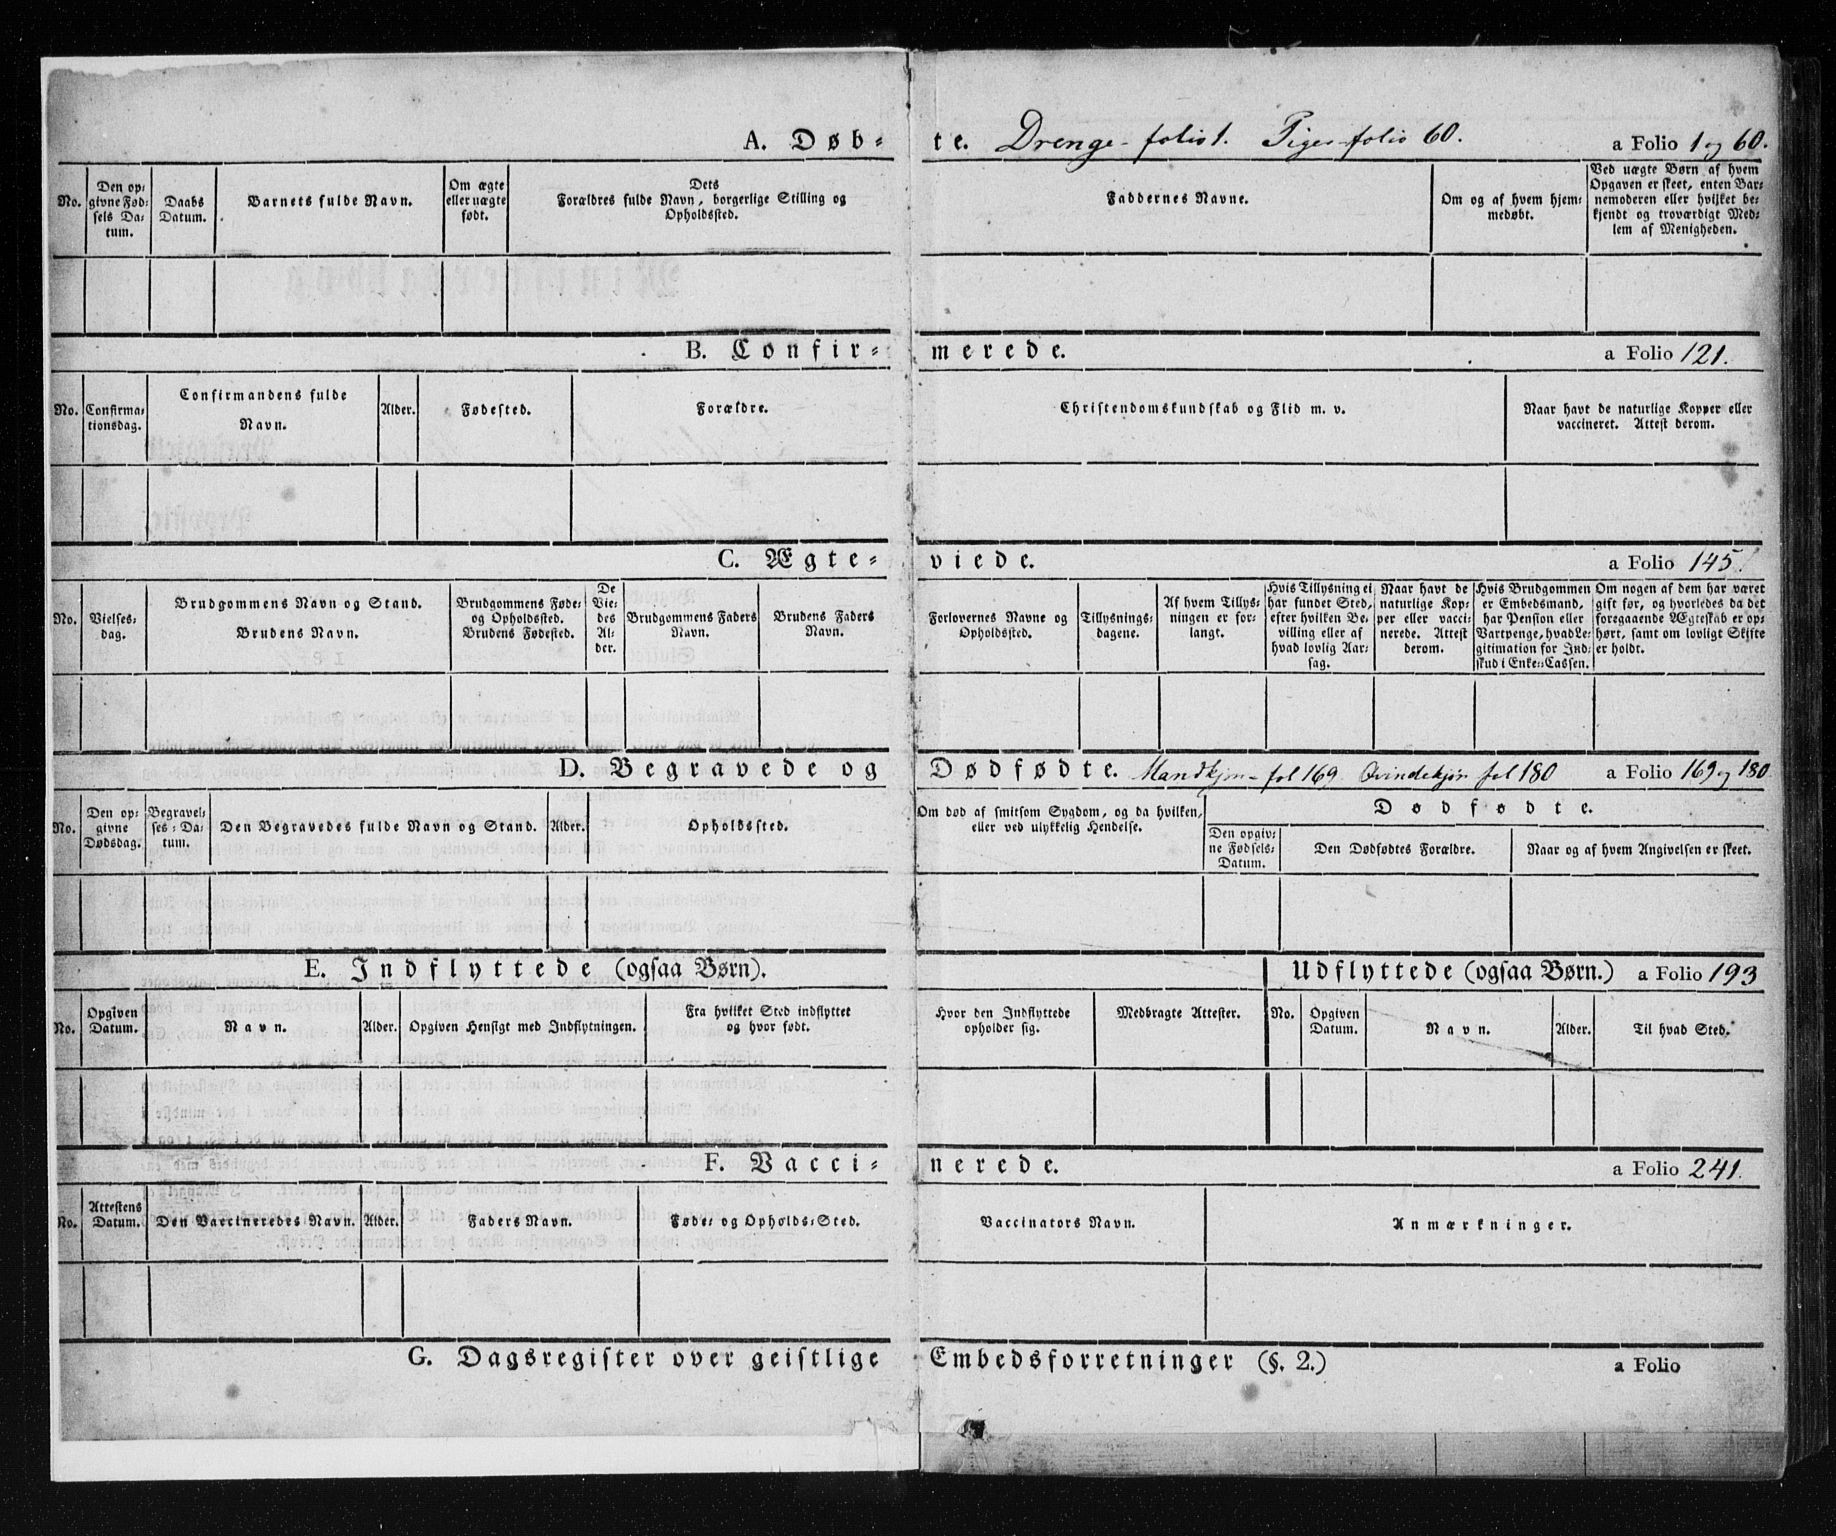 A. Døb- te. Drenge- folio 1. Piger folio 60. a Folio 1 og 60.
No.
Den op-
givne Fød-
sels Da-
tum.
Daabs
Datum.
Barnets fulde Navn.
Om ægte
eller uægte
født.
Dets
Forældres fulde Navn, borgerlige Stilling og
Opholdssted.
Faddernes Navne.
Om og af hvem hjem-
medøbt.
Ved uægte Børn af hvem
Opgaven er skeet, enten Bar-
nemoderen eller hvilket be-
kjendt og troværdigt Med-
lem af Menigheden.
B. Confir- merede. a Folio 121.
No.
Confirma-
tionsdag.
Confirmandens fulde
Navn.
Alder.
Fødested.
Forældre.
Christendomskundskab og Flid m. v.
Naar havt de naturlige Kopper eller
vaccineret. Attest derom.
C. Ægte- viede. a Folio 145.
No.
Vielses-
dag.
Brudgommens Navn og Stand.
Brudens Navn.
Brudgommens Føde-
og Opholdssted.
Brudens Fødested.
De
Vie-
des
Al-
der.
Brudgommens Faders
Navn.
Brudens Faders
Navn.
Forlovernes Navne og
Opholdssted.
Tillysnings-
dagene.
Af hvem Tillys-
ningen er for-
langt.
Hvis Tillysning ei
har fundet Sted,
efter hvilken Be-
villing eller af
hvad lovlig Aar-
sag.
Naar havt de
naturlige Kop-
per eller vacci-
nerede. Attest
derom.
Hvis Brudgommen
er Embedsmand,
har Pension eller
Vartpenge, hvad Le-
gitimation for Ind-
skud i Enke-Cassen.
Om nogen af dem har været
gift før, og hvorledes da det
foregaaende Ægteskab er op-
hørt, samt om lovligt Skifte
er holdt.
D. Begravede og Dødfødte. Mandkjøn- fol 169. Qvindekjøn fol 180 a Folio 169 og 180
No.
Den op-
givne
Dødsdag.
Begravel-
ses-Da-
tum.
Den Begravedes fulde Navn og Stand.
Alder.
Opholdssted.
Om død af smitsom Sygdom, og da hvilken,
eller ved ulykkelig Hendelse.
Dødfødte.
Den opgiv-
ne Fødsels-
Datum.
Den Dødfødtes Forældre.
Naar og af hvem Angivelsen er skeet.
E. Indflyttede (ogsaa Børn). Udflyttede (ogsaa Børn.) a Folio 193
No.
Opgiven
Datum.
Navn.
Alder.
Opgiven Hensigt med Indflytningen.
Fra hvilket Sted indflyttet
og hvor født.
Hvor den Indflyttede
opholder sig.
Medbragte Attester.
No.
Opgiven
Datum.
Navn.
Alder.
Til hvad Sted.
F. Vacci- nerede. a Folio 241.
No.
Attestens
Datum.
Den Vaccineredes Navn.
Alder.
Faders Navn.
Føde- og Opholds-Sted.
Vaccinators Navn.
Anmærkninger.
G. Dagsregister over geistlige Embedsforretninger (§. 2.) a Folio